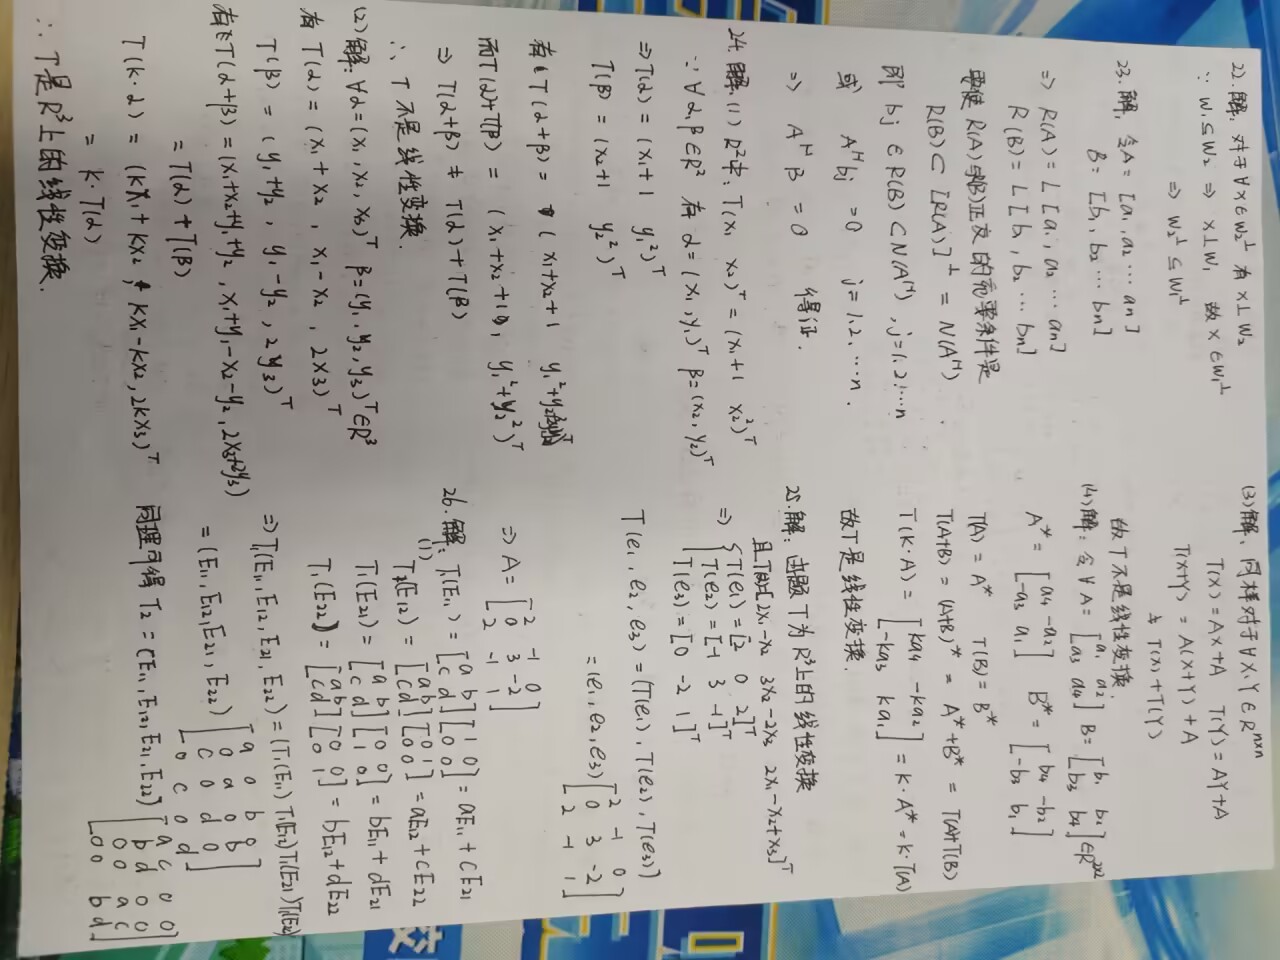 22.解. 对于∀x∈W₂^⊥ 有 x⊥W₂
∵ W₁⊆W₂ ⇒ x⊥W₁ 故 x∈W₁^⊥
⇒ W₂^⊥ ⊆ W₁^⊥
23.解. 令A=[a₁,a₂⋯an]
B=[b₁,b₂⋯bn]
⇒ R(A)=L[a₁,a₂⋯an]
R(B)=L[b₁,b₂⋯bn]
要使 R(A)与R(B)正交的充要条件是
R(B)⊂[R(A)]^⊥=N(A^H).
即 bj∈R(B)⊂N(A^H), j=1.2⋯n
或 A^H bj =0 j=1.2.⋯n.
⇒ A^H B =0 得证.
24.解.(1) R²中: T(x₁ x₂)^T=(x₁+1 x₂²)^T
∵ ∀α,β∈R² 有 α=(x₁,y₁)^T β=(x₂,y₂)^T
⇒T(α)=(x₁+1 y₁²)^T
T(β)=(x₂+1 y₂²)^T
T(α+β)=(x₁+x₂+1
而T(α)+T(β)=(x₁+x₂+
⇒ T(α+β)≠T(α)+T(β)
∴ T不是线性变换.
(2)解:∀α=(x₁,x₂,x₃)^T β=(y₁,y₂,y₃)^T∈R³
有 T(α)=(x₁+x₂, x₁-x₂, 2x₃)^T
T(β)=(y₁+y₂, y₁-y₂, 2y₃)^T
T(α+β)=(x₁+x₂+y₁+y₂, x₁+y₁-x₂-y₂, 2x₃+2y₃)
=T(α)+T(β)
T(k·α)=(kx₁+kx₂, kx₁-kx₂, 2kx₃)^T
=k·T(α)
∴ T是R³上的线性变换.
(3)解、同样对于∀X,Y∈R^{n×n}
T(X)=AX+A T(Y)=AY+A
T(X+Y)=A(X+Y)+A
≠T(X)+T(Y)
故T不是线性变换.
(4)解:令∀A=[a₁ a₂ a₃ a₄] B=[b₁ b₂ b₃ b₄]∈R^{2×2}
A*=[a₄ -a₂ -a₃ a₁] B*=[b₄ -b₂ -b₃ b₁]
T(A)=A* T(B)=B*
T(A+B)=(A+B)*=A*+B*=T(A)+T(B)
T(k·A)=[ka₄ -ka₂ -ka₃ ka₁]=k·A*=k·T(A)
故T是线性变换.
25.解: T为R³上的线性变换
且 [2x₁-x₂ 3x₂-2x₃ 2x₁-x₂+x₃]^T
⇒ {T(e₁)=[2 0 2]^T
T(e₂)=[-1 3 -1]^T
T(e₃)=[0 -2 1]^T
T(e₁,e₂,e₃)=(T(e₁),T(e₂),T(e₃))
=(e₁,e₂,e₃)[2 -1 0 0 3 -2 2 -1 1]
⇒ A=[2 -1 0 0 3 -2 2 -1 1]
26.解:
(1) T₁(E₁₁)=[a b c d][1 0 0 0]=aE₁₁+cE₂₁
(E₁₂)=[a b c d][0 1 0 0]=aE₁₂+cE₂₂
T₁(E₂₁)=[a b c d][0 0 1 0]=bE₁₁+dE₂₁
T₁(E₂₂)=[a b c d][0 0 0 1]=bE₁₂+dE₂₂
⇒T₁(E₁₁,E₁₂,E₂₁,E₂₂)=(T₁(E₁₁) T₁(E₁₂) T₁(E₂₁) T₁(E₂₂)
=(E₁₁,E₁₂,E₂₁,E₂₂)[a 0 b 0 0 a 0 b c 0 d 0 0 c 0 d]
同理可得 T₂=(E₁₁,E₁₂,E₂₁,E₂₂)[a c 0 0 b d 0 0 0 0 a c 0 0 b d]